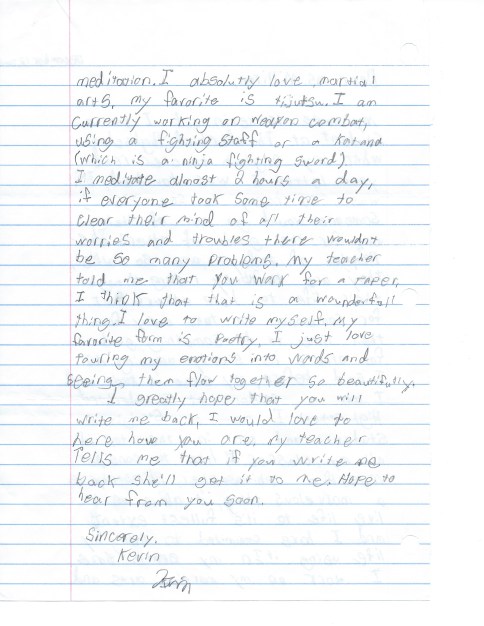 meditation. I absolutly love martial
arts, my favorite is tijutsu. I am
Currently working on weapon combat,
using a fighting staff or a katana
(which is a ninja fighting sword)
I meditate almost 2 hours a day,
if everyone took some time to
clear their mind of all their
worries and troubles there wouldnt
be so many problems. My teacher
told me that you work for a paper,
I think that that is a wounderfall
thing. I love to write myself. My
favorite form is Poetry, I just love
pouring my emotions into words and
seeing them flow together so beautifully.
I greatly hope that you will
write me back, I would love to
here how you are. my teacher
Tells me that if you write me
back she'll get it to me. Hope to
hear from you soon.
Sincerely,
Kevin